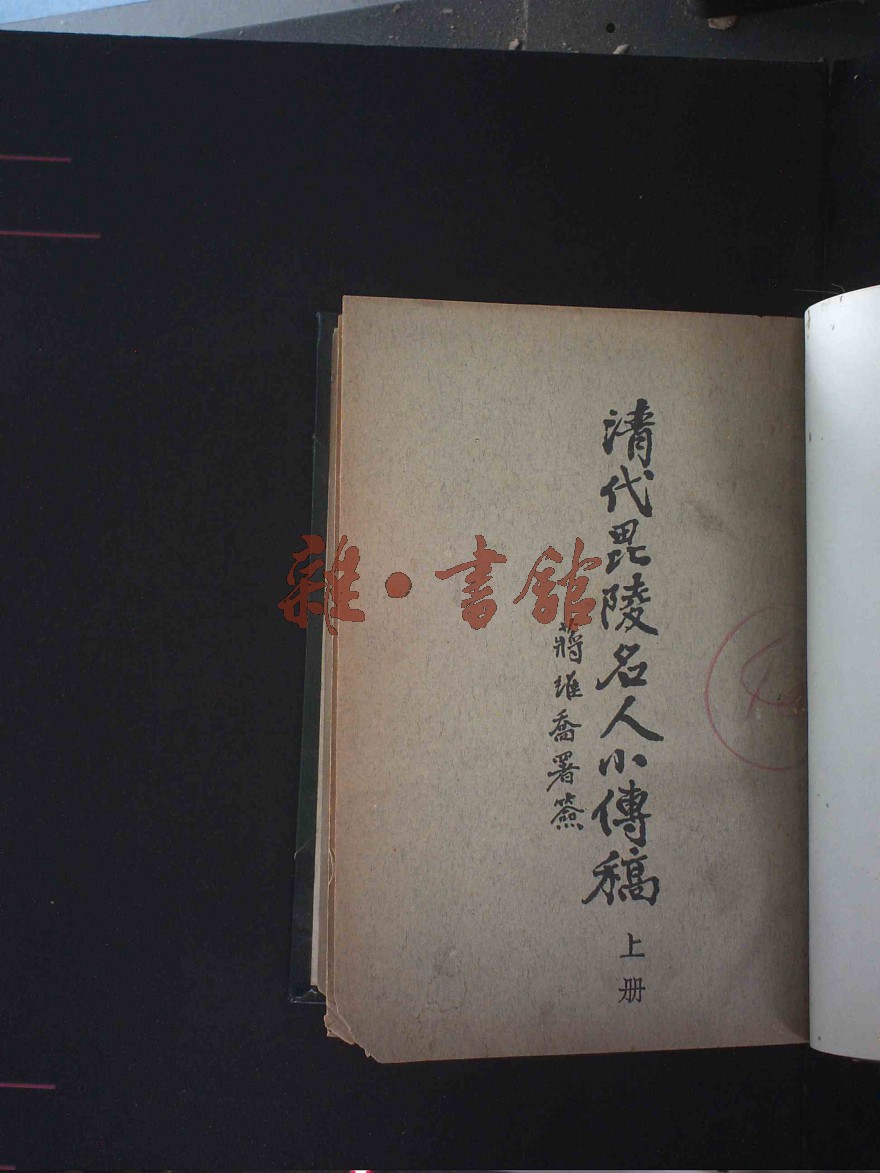 清代毘陵名人小傳稿
上册
蔣維喬署簽
雜·書館